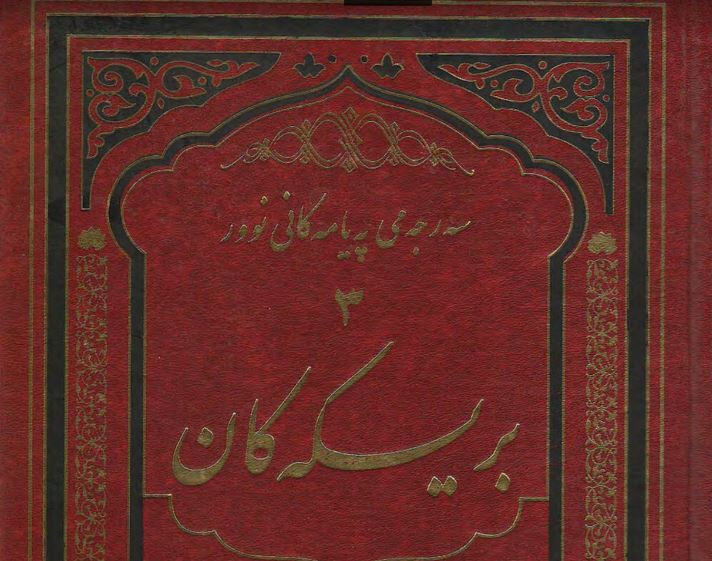 سەرجەمی پەیامەکانی نوور
٣
بریسکەکان